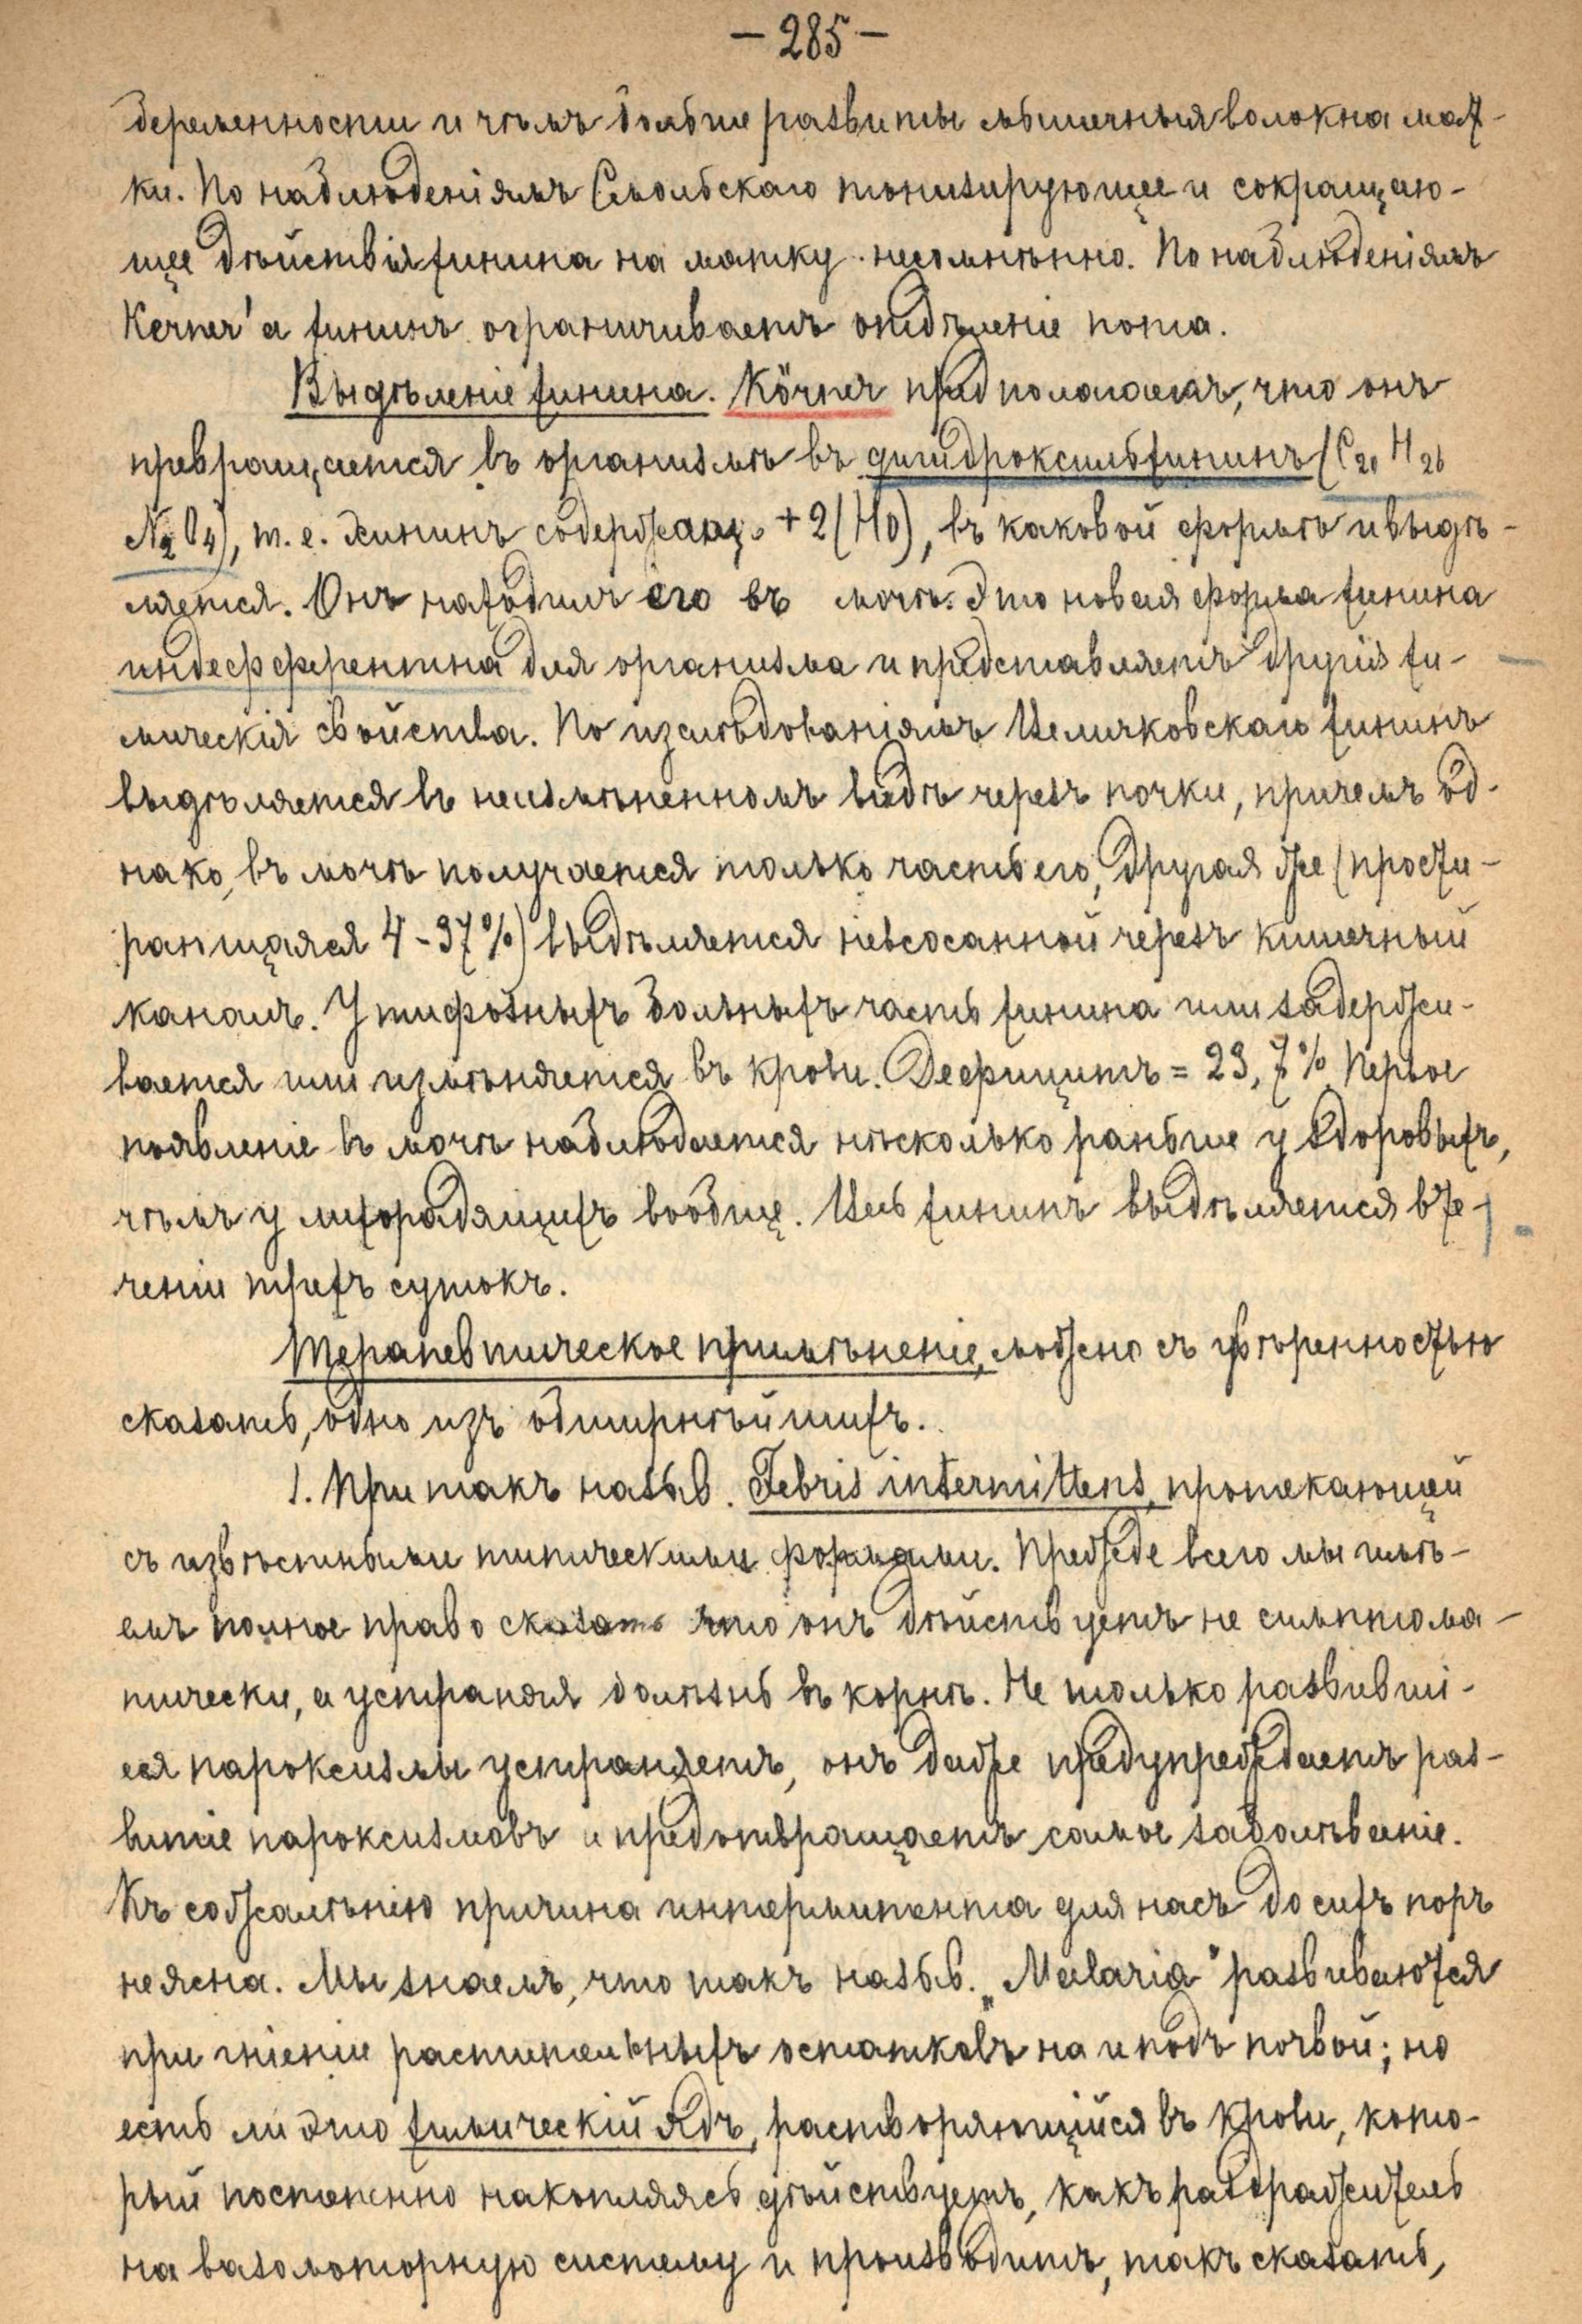 — 285 —
беременности и чѣмъ больше развиты мышечныя волокна мат-
ки. По наблюденіямъ Смольскаго тонизирующее и сокращаю-
щее дѣйствія хинина на матку несомнѣнно. По наблюденіямъ
Kerner'а хининъ ограничиваетъ отдѣленіе пота.
Выдѣленіе хинина. Körner предполагаетъ, что онъ
превращается въ организмѣ въ дигидроксильхининъ (C20 H26
N2 O4), т. е. хининъ содержащ. + 2(HO), въ каковой формѣ и выдѣ-
ляется. Онъ находилъ его въ мочѣ. Это новая форма хинина
индефферентна для организма и представляетъ другія хи-
мическія свойства. По изслѣдованіямъ хининъ
выдѣляется въ неизмѣненномъ видѣ черезъ почки, причемъ од-
нако, въ мочѣ получается только часть его, другая же (прости-
рающаяся 4-37%) выдѣляется невсосанной черезъ кишечный
каналъ. У тифозныхъ больныхъ часть хинина или задержи-
вается или измѣняется въ крови. Дефицитъ = 23,7%. Первое
появленіе въ мочѣ наблюдается нѣсколько раньше у здоровыхъ,
чѣмъ у лихорадящихъ вообще. хининъ выдѣляется въ те-
ченіи трехъ сутокъ.
Терапевтическое примѣненіе, можно съ увѣренностью
сказать, одно изъ обширнѣйшихъ.
1. При такъ назыв. Febris intermittens, протекающей
съ извѣстными типическими формами. Прежде всего мы имѣ-
емъ полное право сказать что онъ дѣйствуетъ не симптома-
тически, а устраняя болѣзнь въ корнѣ. Не только развивші-
еся пароксизмы устраняетъ, онъ даже предупреждаетъ раз-
витіе пароксизмовъ и предотвращаетъ самое заболѣваніе.
Къ сожалѣнію причина интермитента для насъ до сихъ поръ
неясна. Мы знаемъ, что такъ назыв. „Malaria" развиваются
при гніеніе растительныхъ остатковъ на и подъ почвой; но
есть ли это химическій ядъ, растворяющійся въ крови, кото-
рый постепенно накопляясь дѣйствуетъ, какъ раздражитель
на вазомоторную систему и производитъ, такъ сказать,